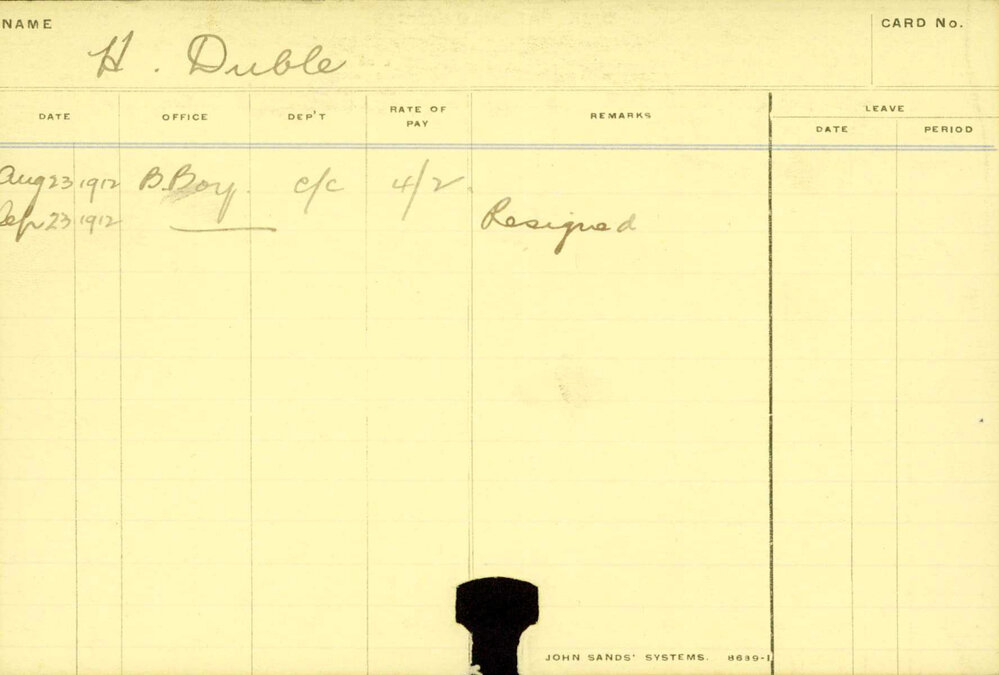 NAME
H. Duble
CARD No.
DATE OFFICE DEP'T RATE OF PAY REMARKS LEAVE
DATE PERIOD
Aug 23 1912 B.Boy. c/c 4/2.
Sep 23 1912 Resigned
JOHN SANDS' SYSTEMS. 8689-1